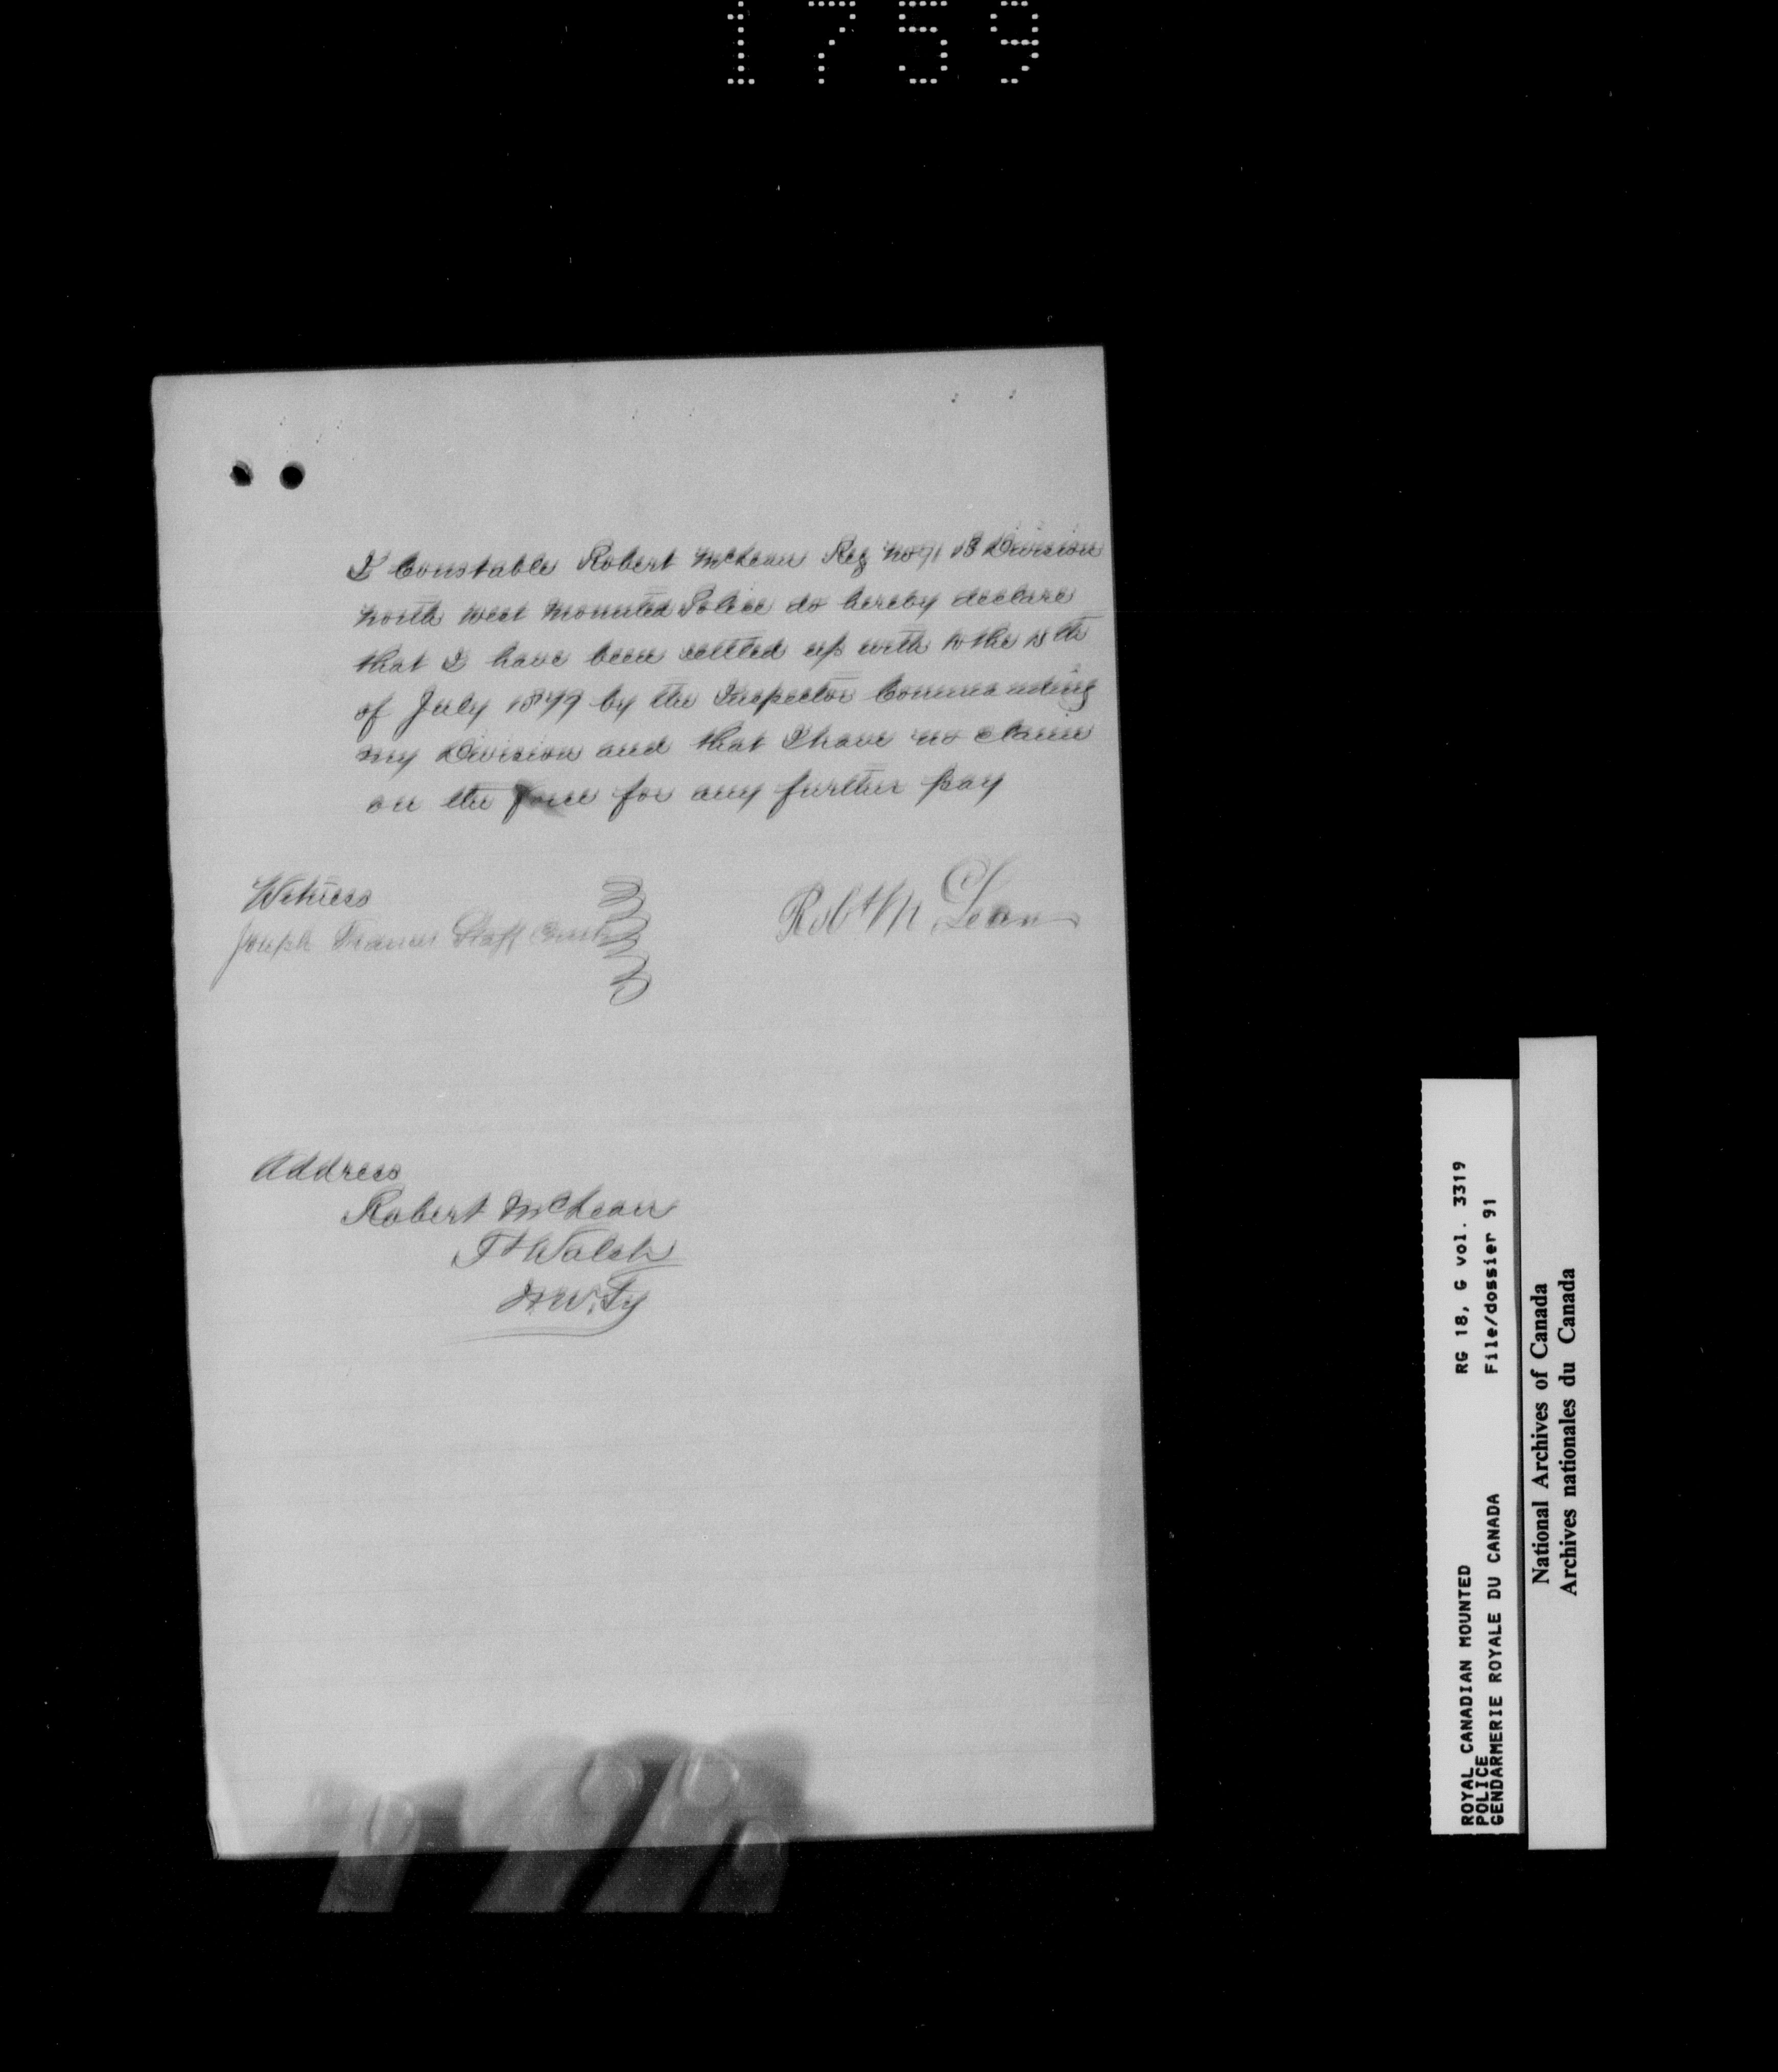 1759
I Constable Robert McLean Reg No 91 B Division
North West Mounted Police do hereby declare
that I have been settled up with to the 15th
of July 1879 by the Inspector Commanding
my Division and that I have no claim
on the force for any further pay
Witness
Joseph Francis Staff Const
Robt McLean
Address
Robert McLean
Ft Walsh
N.W.Ty
ROYAL CANADIAN MOUNTED RG 18, G vol. 3319
POLICE
GENDARMERIE ROYALE DU CANADA File/dossier 91
National Archives of Canada
Archives nationales du Canada